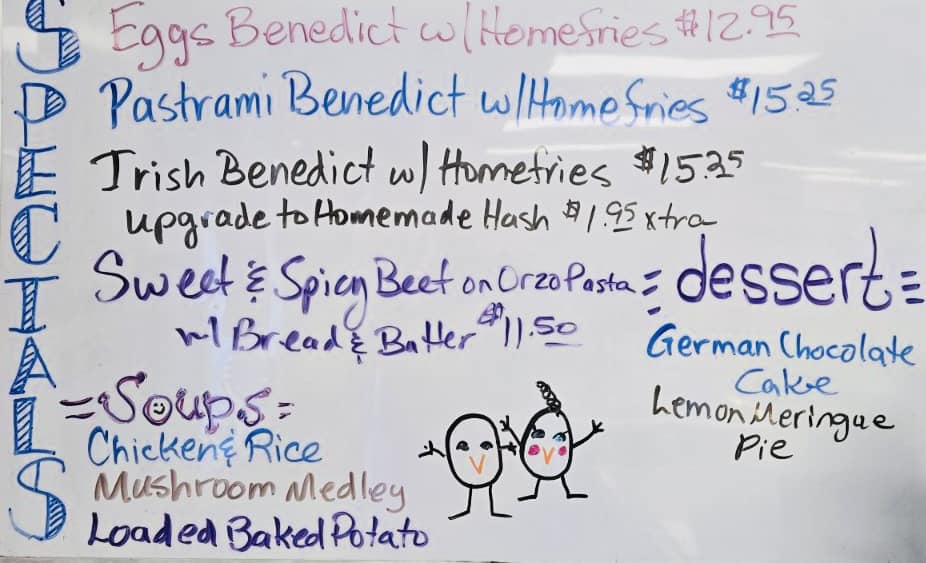 SPECIALS
Eggs Benedict w/Homefries $12.95
Pastrami Benedict w/Homefries $15.25
Irish Benedict w/ Homefries $15.25
upgrade to Homemade Hash $1.95 xtra
Sweet & Spicy Beef on Orzo Pasta
w/ Bread & Butter $11.50
= Soups =
Chicken & Rice
Mushroom Medley
Loaded Baked Potato
= dessert =
German Chocolate
Cake
Lemon Meringue
Pie